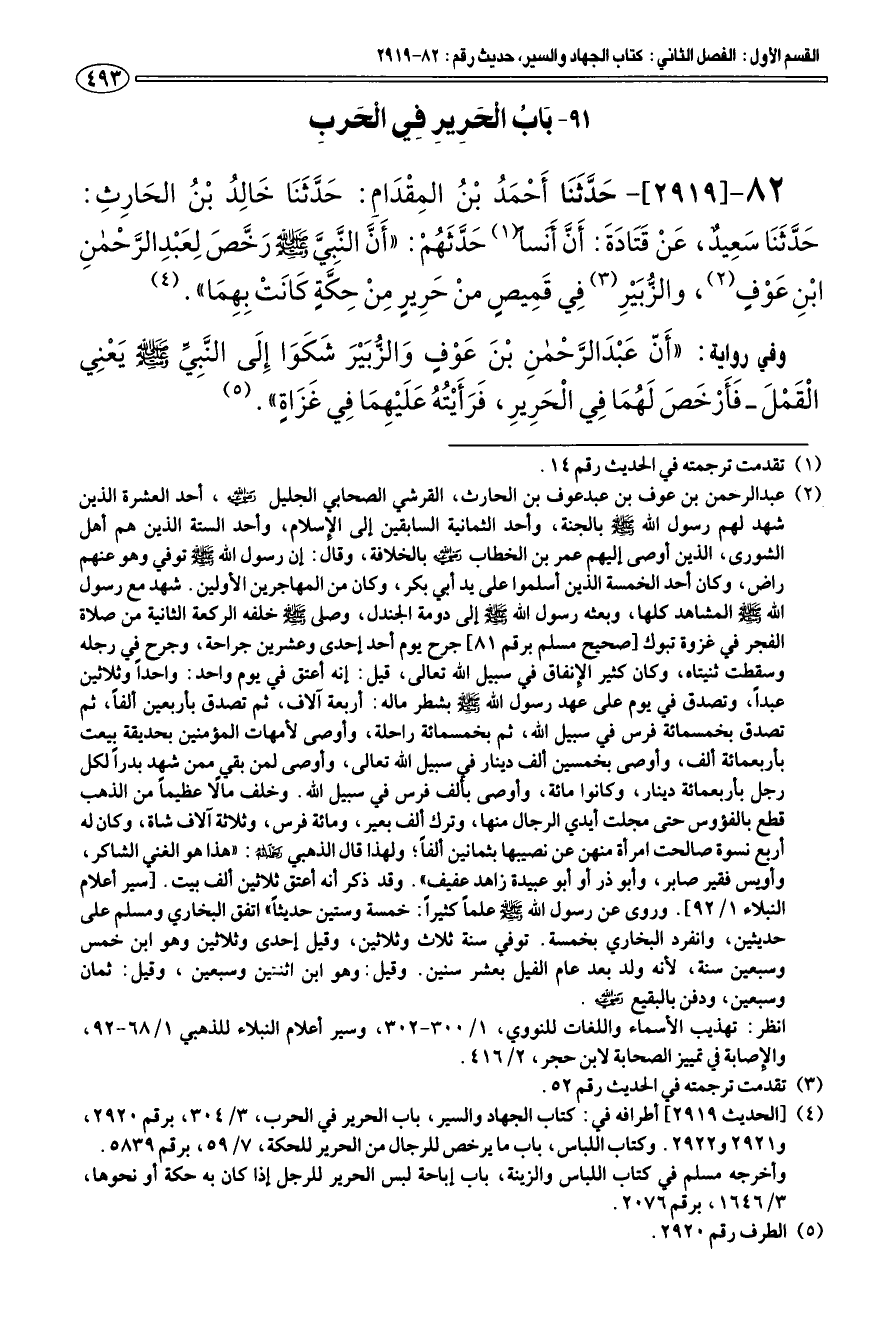 القسم الأول: الفصل الثاني: كتاب الجهاد والسير، حديث رقم: ٨٢-٢٩١٩
٤٩٣
٩١- بَابُ الْحَرِيرِ فِي الْحَربِ
٨٢-[٢٩١٩]- حَدَّثَنَا أَحْمَدُ بْنُ المِقْدَامِ: حَدَّثَنَا خَالِدُ بْنُ الحَارِثِ:
حَدَّثَنَا سَعِيدٌ، عَنْ قَتَادَةَ: أَنَّ أَنَساً(١) حَدَّثَهُمْ: «أَنَّ النَّبِيَّ ﷺ رَخَّصَ لِعَبْدِالرَّحْمٰنِ
ابْنِ عَوْفٍ(٢)، والزُّبَيْرِ(٣) فِي قَمِيصٍ منْ حَرِيرٍ مِنْ حِكَّةٍ كَانَتْ بِهِمَا».(٤)
وفي رواية: «أَنّ عَبْدَالرَّحْمٰنِ بْنَ عَوْفٍ وَالزُّبَيْرَ شَكَوَا إِلَى النَّبِيِّ ﷺ يَعْنِي
الْقَمْلَ - فَأَرْخَصَ لَهُمَا فِي الْحَرِيرِ، فَرَأَيْتُهُ عَلَيْهِمَا فِي غَزَاةٍ».(٥)
(١) تقدمت ترجمته في الحديث رقم ١٤.
(٢) عبدالرحمن بن عوف بن عبدعوف بن الحارث، القرشي الصحابي الجليل رضي الله عنه، أحد العشرة الذين
شهد لهم رسول الله ﷺ بالجنة، وأحد الثمانية السابقين إلى الإسلام، وأحد الستة الذين هم أهل
الشورى، الذين أوصى إليهم عمر بن الخطاب رضي الله عنه بالخلافة، وقال: إن رسول الله ﷺ توفي وهو عنهم
راض، وكان أحد الخمسة الذين أسلموا على يد أبي بكر، وكان من المهاجرين الأولين. شهد مع رسول
الله ﷺ المشاهد كلها، وبعثه رسول الله ﷺ إلى دومة الجندل، وصلى ﷺ خلفه الركعة الثانية من صلاة
الفجر في غزوة تبوك [صحيح مسلم برقم ٨١] جرح يوم أحد إحدى وعشرين جراحة، وجرح في رجله
وسقطت ثنيتاه، وكان كثير الإنفاق في سبيل الله تعالى، قيل: إنه أعتق في يوم واحد: واحداً وثلاثين
عبداً، وتصدق في يوم على عهد رسول الله ﷺ بشطر ماله: أربعة آلاف، ثم تصدق بأربعين ألفاً، ثم
تصدق بخمسمائة فرس في سبيل الله، ثم بخمسمائة راحلة، وأوصى لأمهات المؤمنين بحديقة بيعت
بأربعمائة ألف، وأوصى بخمسين ألف دينار في سبيل الله تعالى، وأوصى لمن بقي ممن شهد بدراً لكل
رجل بأربعمائة دينار، وكانوا مائة، وأوصى بألف فرس في سبيل الله. وخلف مالًا عظيماً من الذهب
قطع بالفؤوس حتى مجلت أيدي الرجال منها، وترك ألف بعير، ومائة فرس، وثلاثة آلاف شاة، وكان له
أربع نسوة صالحت امرأة منهن عن نصيبها بثمانين ألفاً؛ ولهذا قال الذهبي رحمه الله: «هذا هو الغني الشاكر،
وأويس فقير صابر، وأبو ذر أو أبو عبيدة زاهد عفيف». وقد ذكر أنه أعتق ثلاثين ألف بيت. [سير أعلام
النبلاء ١/ ٩٢]. وروى عن رسول الله ﷺ علماً كثيراً: خمسة وستين حديثاً» اتفق البخاري ومسلم على
حديثين، وانفرد البخاري بخمسة. توفي سنة ثلاث وثلاثين، وقيل إحدى وثلاثين وهو ابن خمس
وسبعين سنة، لأنه ولد بعد عام الفيل بعشر سنين. وقيل: وهو ابن اثنتين وسبعين، وقيل: ثمان
وسبعين، ودفن بالبقيع رضي الله عنه.
انظر: تهذيب الأسماء واللغات للنووي، ١/ ٣٠٠-٣٠٢، وسير أعلام النبلاء للذهبي ١/ ٦٨-٩٢،
والإصابة في تمييز الصحابة لابن حجر، ٢/ ٤١٦.
(٣) تقدمت ترجمته في الحديث رقم ٥٢.
(٤) [الحديث ٢٩١٩] أطرافه في: كتاب الجهاد والسير، باب الحرير في الحرب، ٣/ ٣٠٤، برقم ٢٩٢٠،
و٢٩٢١ و٢٩٢٢. وكتاب اللباس، باب ما يرخص للرجال من الحرير للحكة، ٧/ ٥٩، برقم ٥٨٣٩.
وأخرجه مسلم في كتاب اللباس والزينة، باب إباحة لبس الحرير للرجل إذا كان به حكة أو نحوها،
٣/ ١٦٤٦، برقم ٢٠٧٦.
(٥) الطرف رقم ٢٩٢٠.